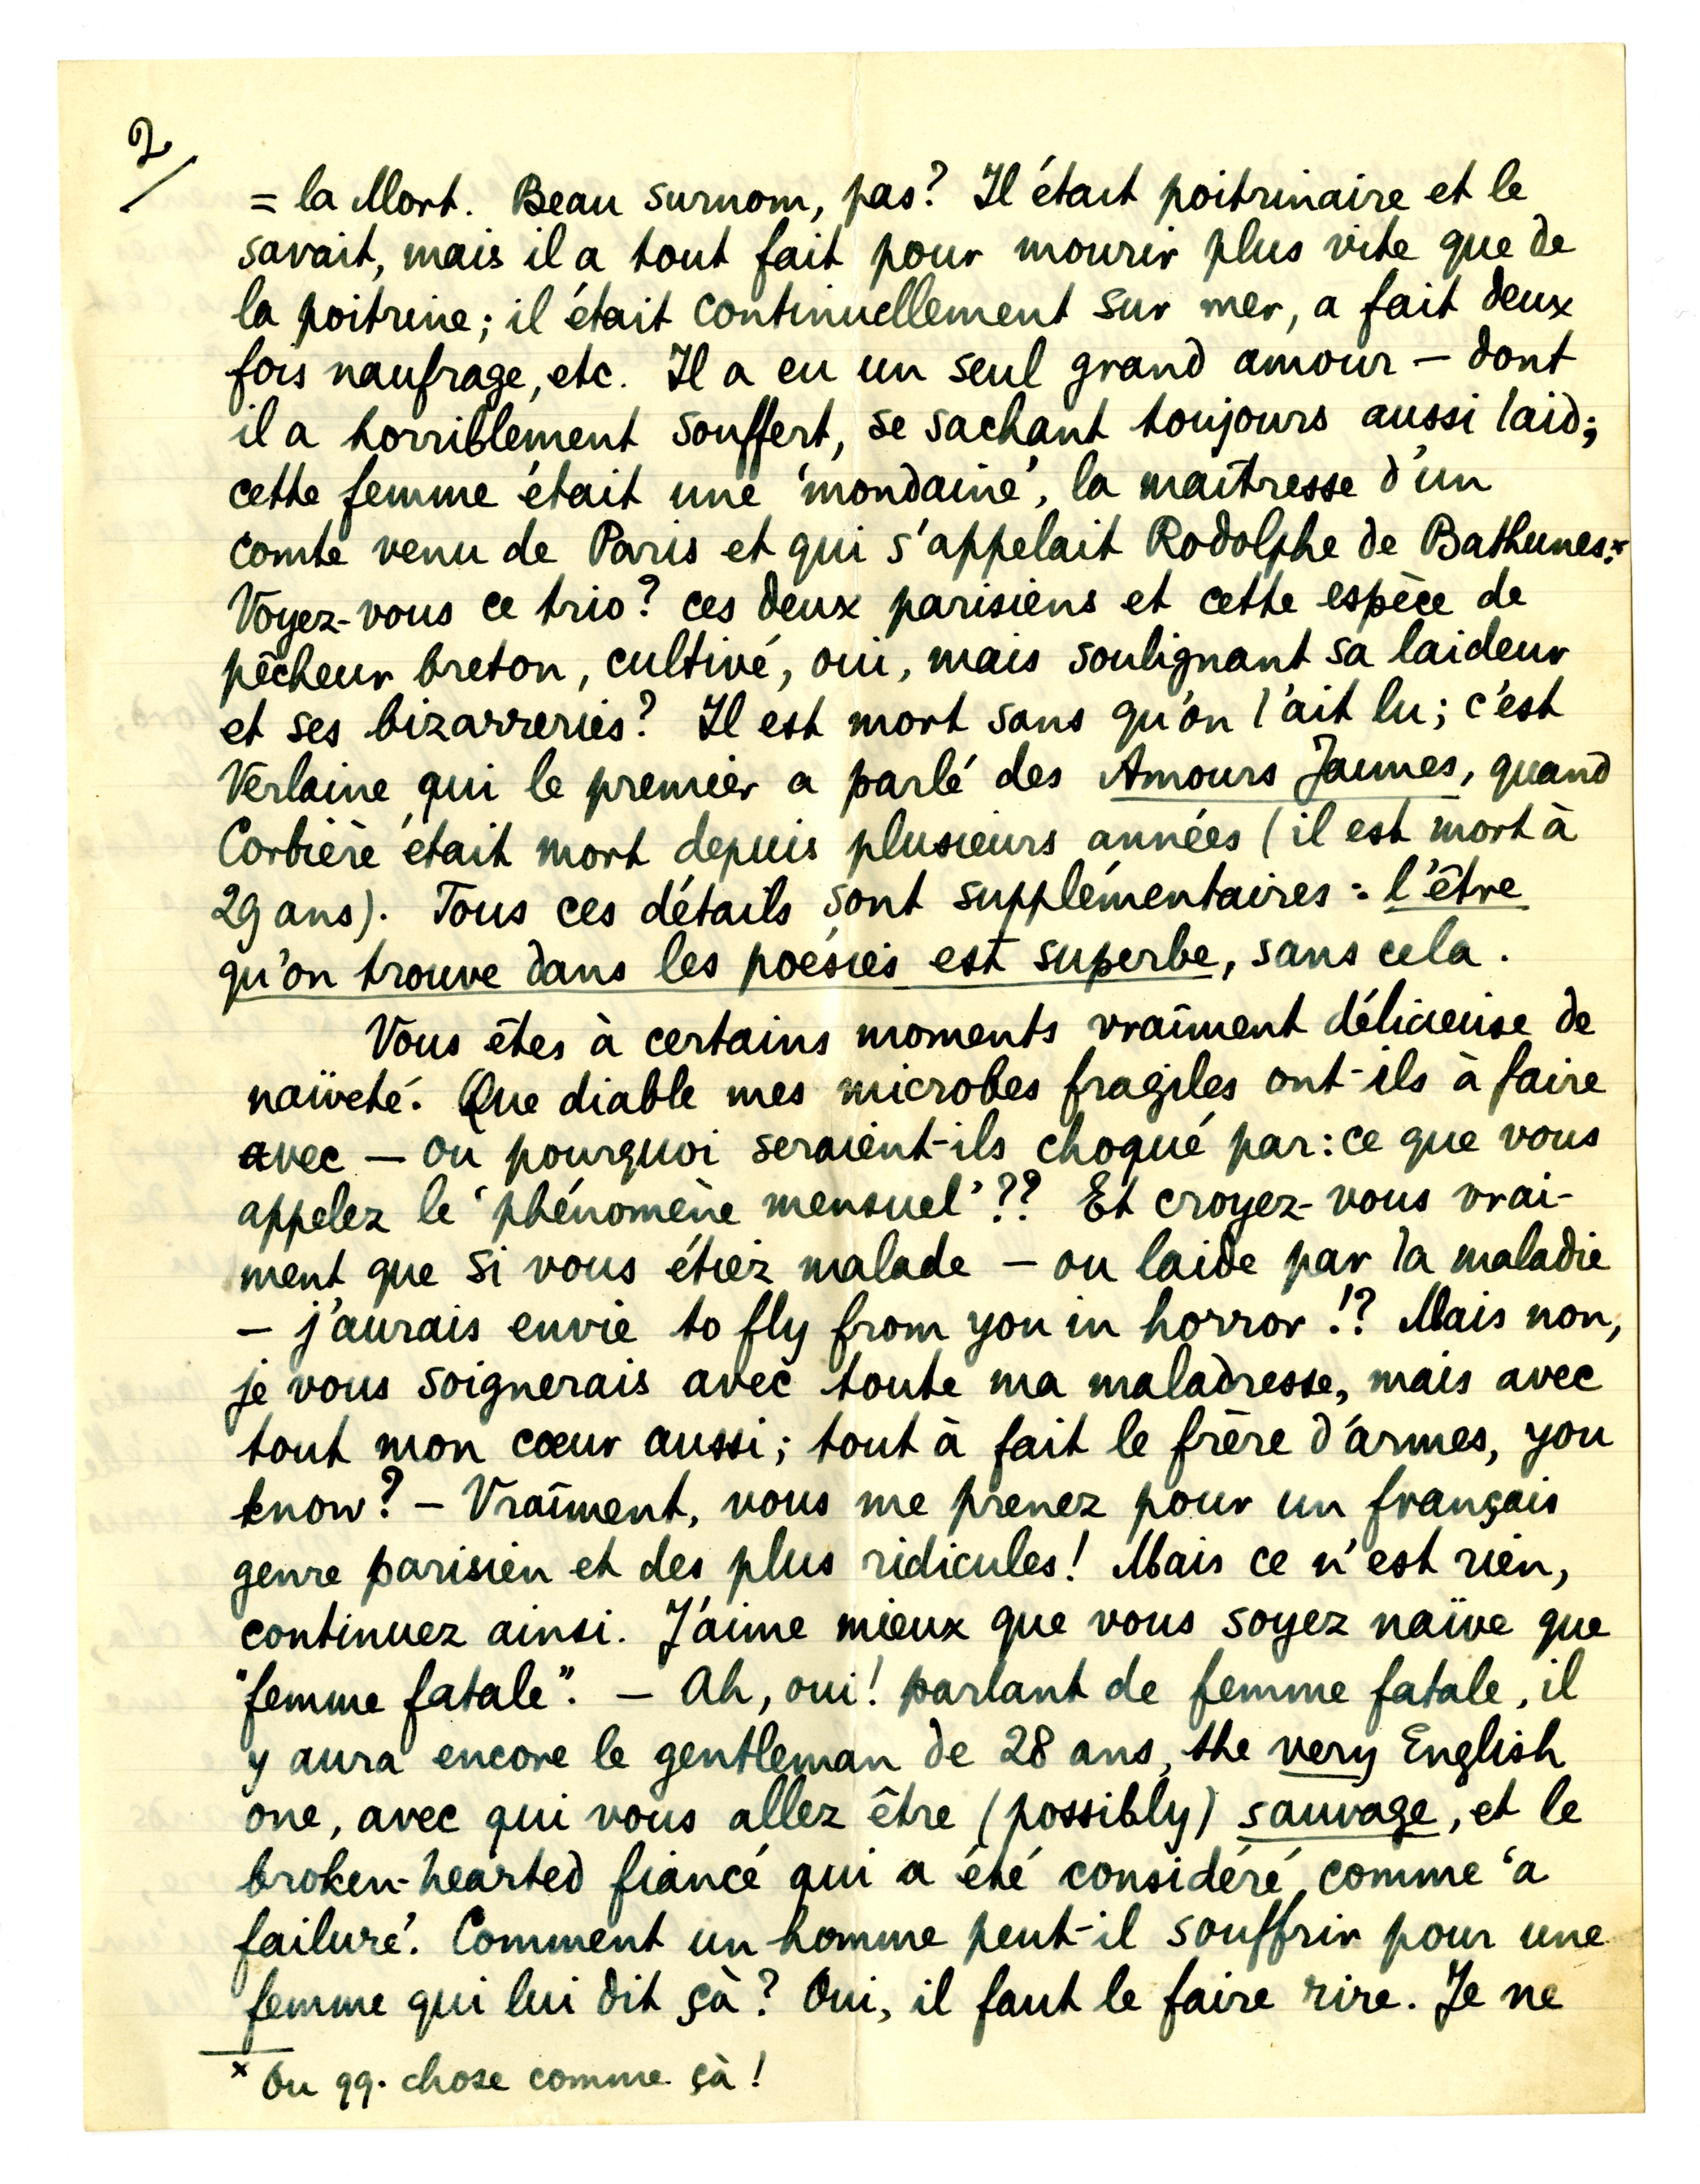 2/
= la Mort. Beau surnom, pas? Il était poitrinaire et le
savait, mais il a tout fait pour mourir plus vite que de
la poitrine; il était continuellement sur mer, a fait deux
fois naufrage, etc. Il a eu un seul grand amour – dont
il a horriblement souffert, se sachant toujours aussi laid;
cette femme était une 'mondaine', la maîtresse d'un
comte venu de Paris et qui s'appelait Rodolphe de Bathunes.x
Voyez-vous ce trio? ces deux parisiens et cette espèce de
pêcheur breton, cultivé, oui, mais soulignant sa laideur
et ses bizarreries? Il est mort sans qu'on l'ait lu; c'est
Verlaine qui le premier a parlé des Amours Jaunes, quand
Corbière était mort depuis plusieurs années (il est mort à
29 ans). Tous ces détails sont supplémentaires: l'être
qu'on trouve dans les poésies est superbe, sans cela.
Vous êtes à certains moments vraîment délicieuse de
naïveté. Que diable mes microbes fragiles ont-ils à faire
avec – ou pourquoi seraient-ils choqué par: ce que vous
appelez le 'phénomène mensuel'?? Et croyez-vous vrai-
ment que si vous étiez malade – ou laide par la maladie
– j'aurais envie to fly from you in horror!? Mais non,
je vous soignerais avec toute ma maladresse, mais avec
tout mon cœur aussi; tout à fait le frère d'armes, you
know? – Vraîment, vous me prenez pour un français
genre parisien et des plus ridicules! Mais ce n'est rien,
continuez ainsi. J'aime mieux que vous soyez naïve que
"femme fatale". – Ah, oui! parlant de femme fatale, il
y aura encore le gentleman de 28 ans, the very English
one, avec qui vous allez être (possibly) sauvage, et le
broken-hearted fiancé qui a été considéré comme 'a
failure'. Comment un homme peut-il souffrir pour une
femme qui lui dit çà? Oui, il faut le faire rire. Je ne
x Ou qq. chose comme çà!